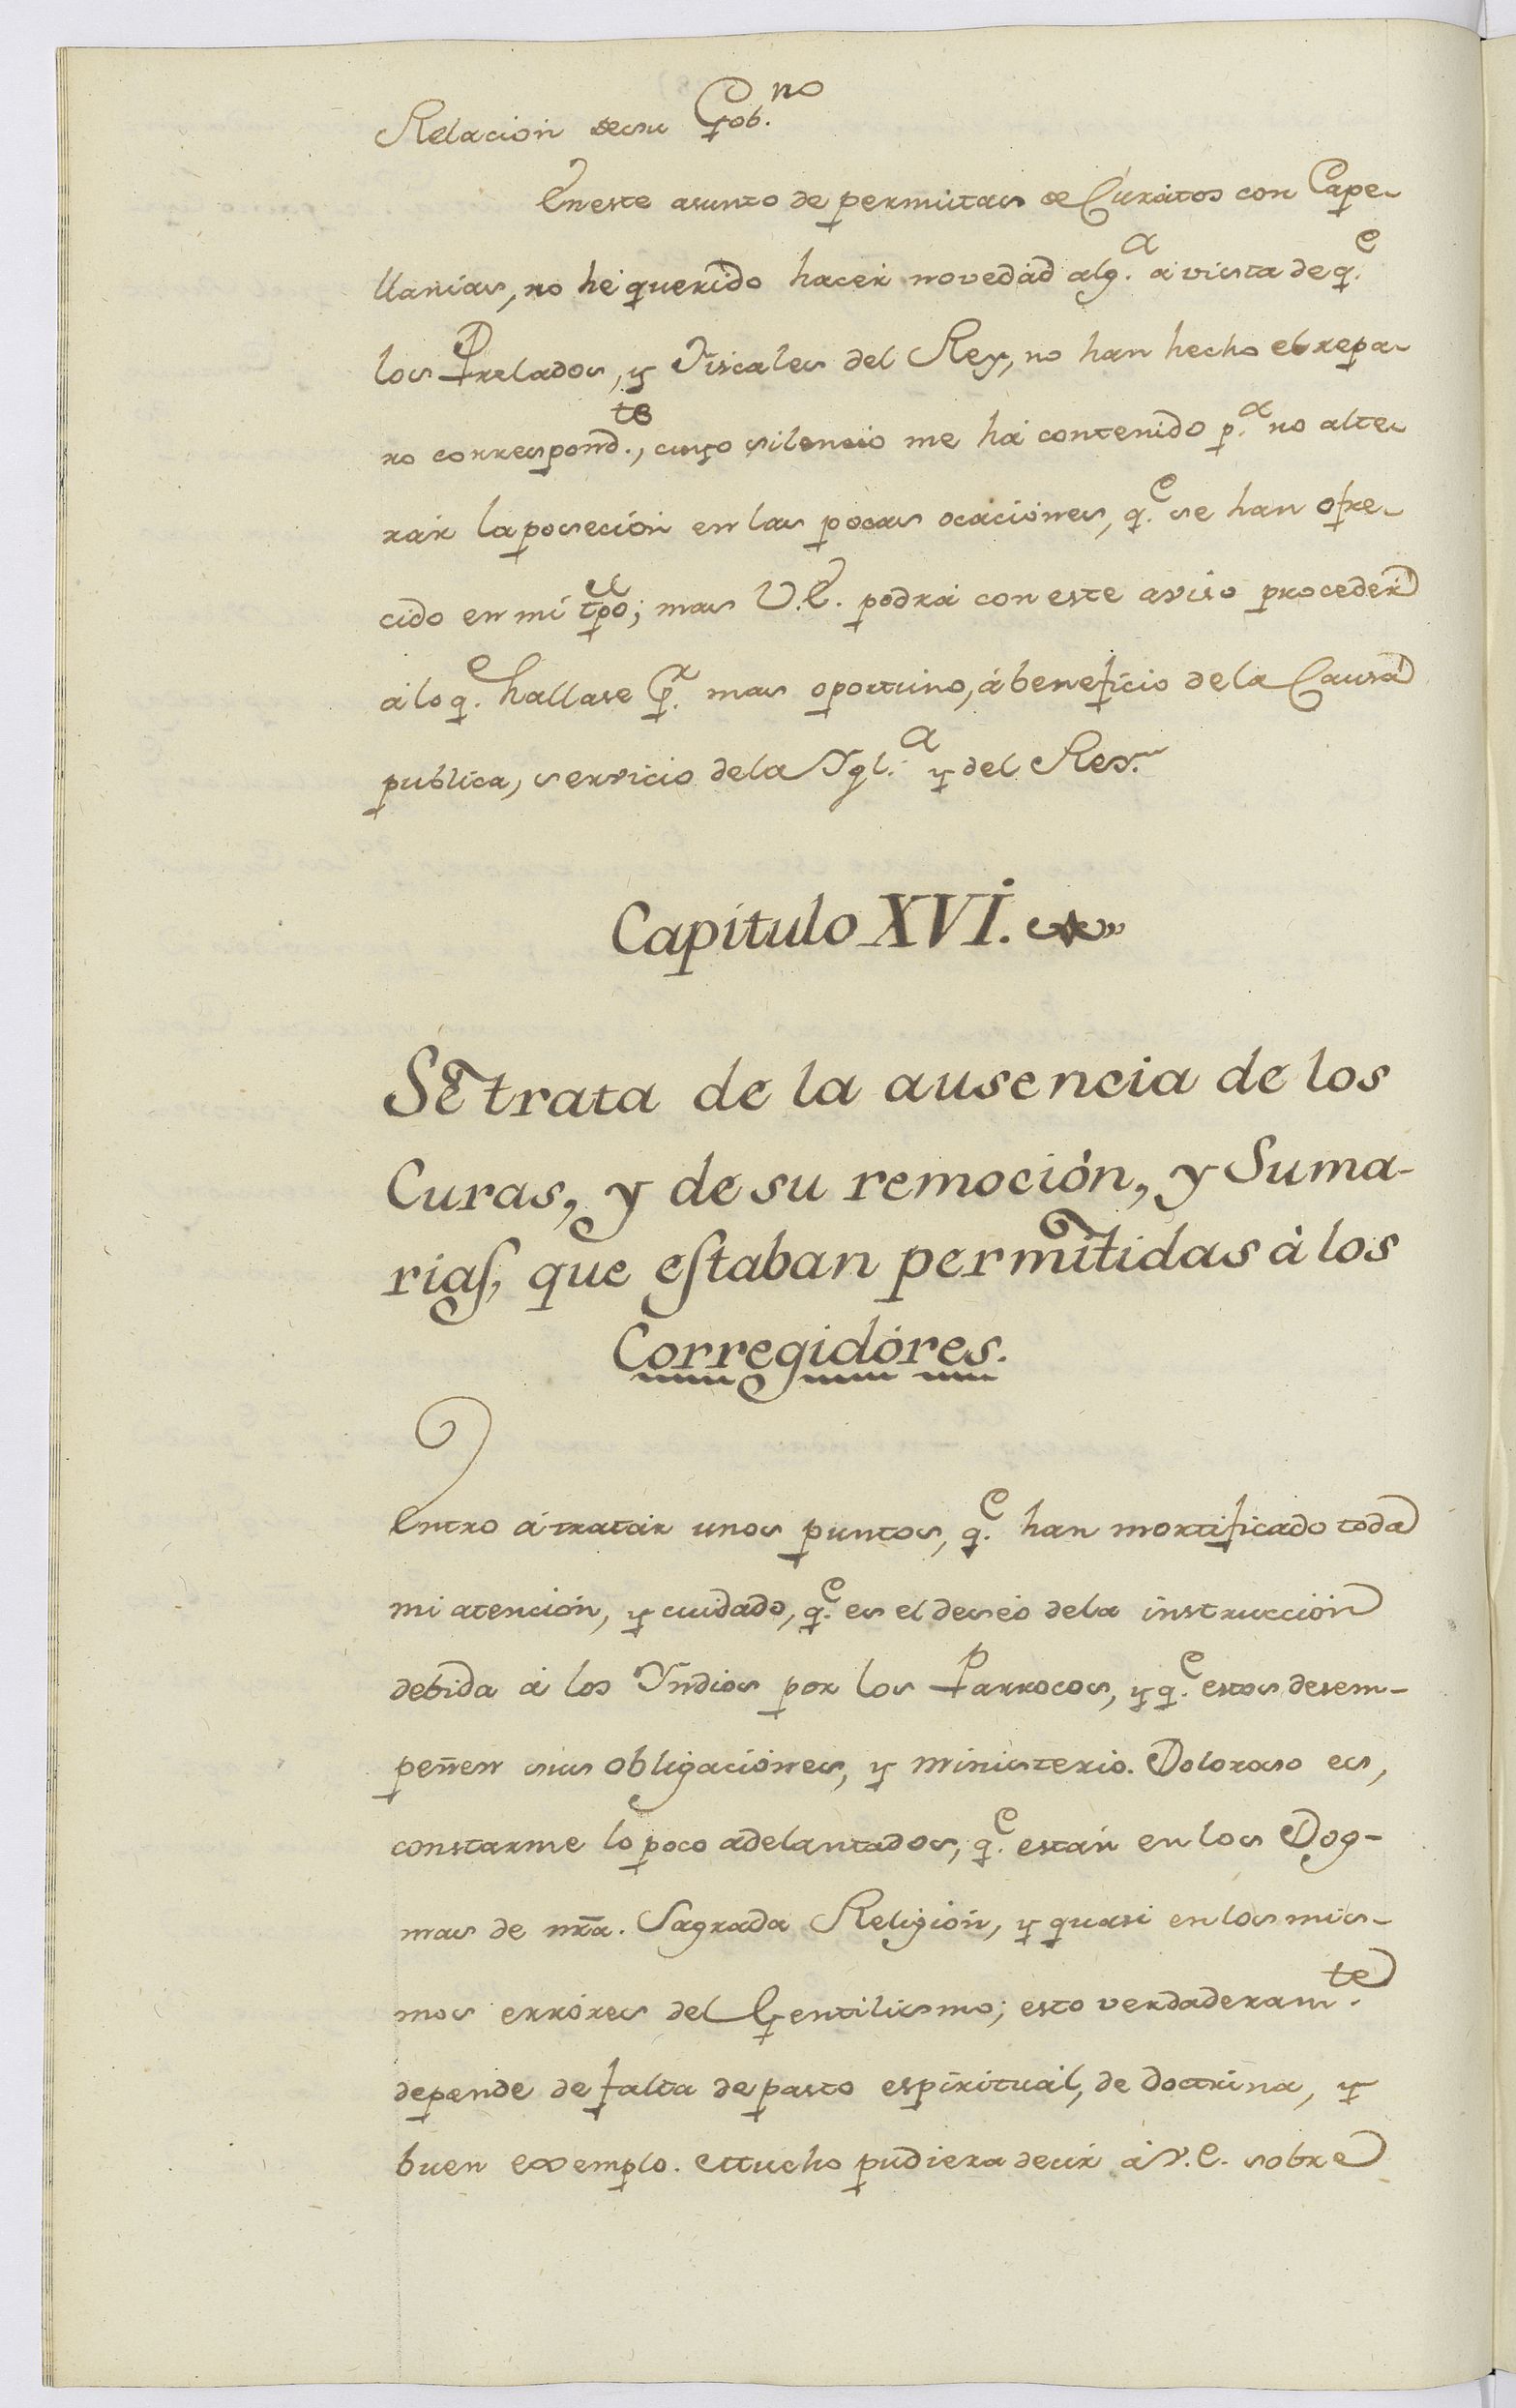 Relacion desu Gob.no
Eneste asunto de permutas de Curàtos con Cape-
llanias, no hé querido hacer novedàd alg.a á vista de q.e
los Prelados, y Fiscales del Rey, no han hecho el repa-
ro correspond.te, cuyo silencio me há contenido p.a no alte-
rár la poseción en las pocas ocaciónes, q.e se han ofre-
cido en mi tpo; mas V.E. podrá con este aviso procedér
á lo q.e hallase p.r mas oportuno, á beneficio de la Causa
publica, servicio dela Ygl.a y del Rey.
Capitulo XVI.
Se trata de la ausencia de los
Curas, y de su remoción, y Suma-
rias, que estaban permitidas à los
Corregidóres.
Entro á tratár unos puntos, q.e han mortificado toda
mi atención, y cuidado, q.e es el deséo dela instrucción
debida á los Yndios por los Parrocos, y q.e estos desem-
peñen sus obligaciónes, y ministerio. Doloraso es,
constarme lo poco adelantados, q.e están en los Dog-
mas de nra. Sagrada Religión, y quasi en los mis-
mos erróres del Gentilismo; esto verdaderam.te
depende de falta de pasto espirituál, de doctrina, y
buen exemplo. Mucho pudiera decir á V.E. sobre